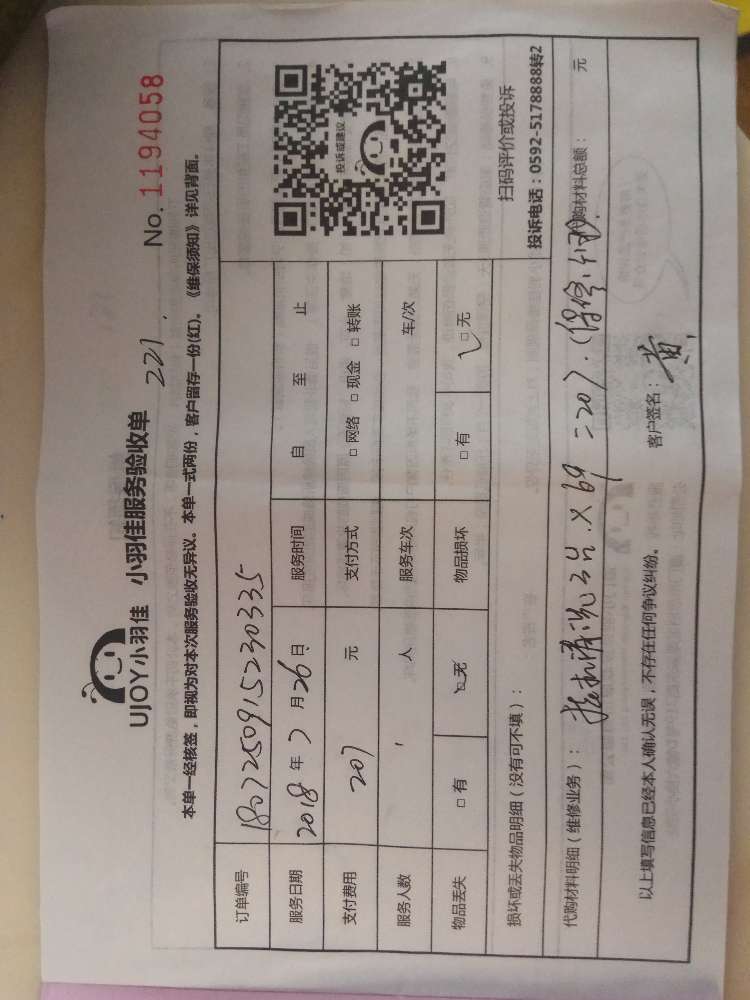 UJOY小羽佳 小羽佳服务验收单 221. No. 1194058
本单一经核签，即视为对本次服务验收无异议。本单一式两份，客户留存一份(红)。《维保须知》详见背面。
订单编号 18072509152303335
服务日期 2018 年 7 月 26 日 服务时间 自 至 止
支付费用 207 元 支付方式 □ 网络 □ 现金 □ 转账
服务人数 人 服务车次 车/次
物品丢失 □ 有 □ 无 物品损坏 □ 有 □ 无
投诉或建议
扫码评价或投诉
投诉电话：0592-5178888转2
损坏或丢失物品明细（没有可不填）：
代购材料明细（维修业务）： 挂机清洗3台.×69 =207. 代购材料总额： 元
以上填写信息已经本人确认无误，不存在任何争议纠纷。 客户签名： 黄